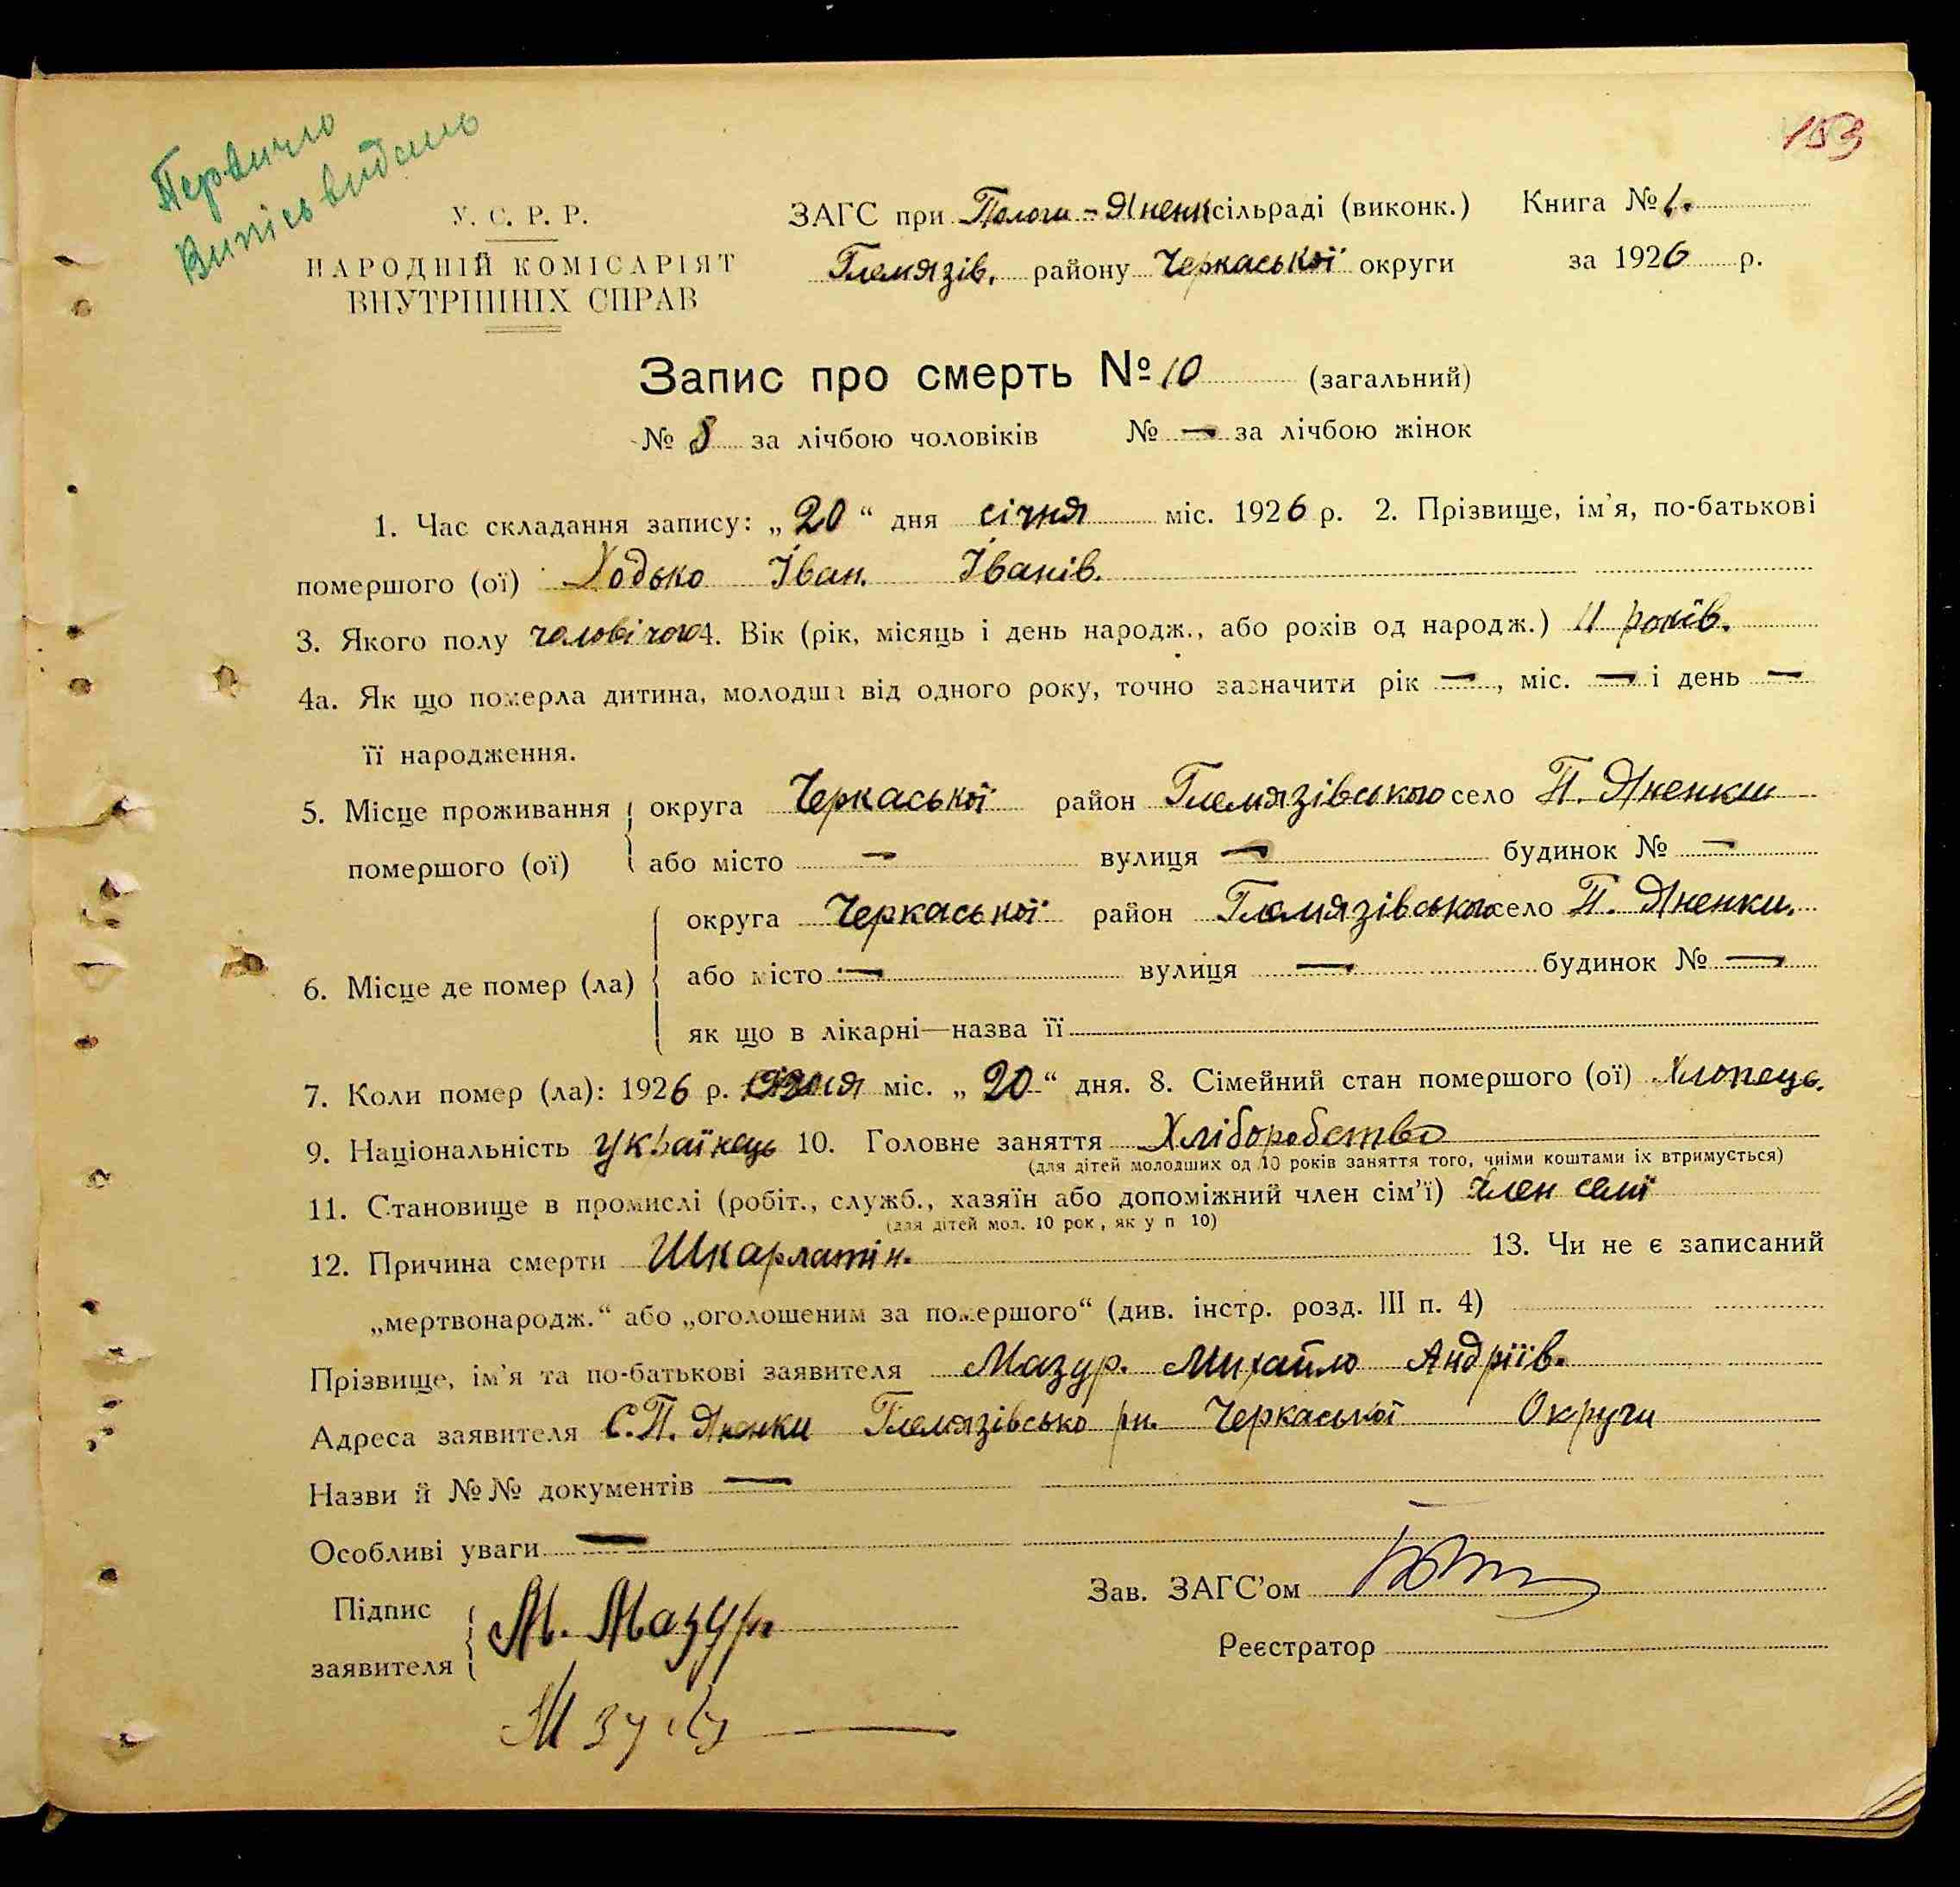 Первичло
Випісь видань
153
У. С. Р. Р.
НАРОДНІЙ КОМІСАРІЯТ
ВНУТРІШНІХ СПРАВ
ЗАГС при Пологи-Яненк сільраді (виконк.) Книга № 1.
Гелмязів. району Черкаської округи за 1926 р.
Запис про смерть № 10 (загальний)
№ 8 за лічбою чоловіків № — за лічбою жінок
1. Час складання запису: „20“ дня січня міс. 1926 р. 2. Прізвище, ім'я, по-батькові
помершого (ої) Ходько Іван. Іванів.
3. Якого полу чоловічого 4. Вік (рік, місяць і день народж., або років од народж.) 11 років.
4а. Як що померла дитина, молодша від одного року, точно зазначити рік —, міс. — і день —
її народження.
5. Місце проживання помершого (ої) округа Черкаської район Гелмязівського село П. Яненки
або місто — вулиця — будинок № —
6. Місце де помер (ла) округа Черкаської район Гелмязівського село П. Яненки.
або місто — вулиця — будинок № —
як що в лікарні—назва її
7. Коли помер (ла): 1926 р. січня міс. „20“ дня. 8. Сімейний стан помершого (ої) Хлопець.
9. Національність Українець 10. Головне заняття Хліборобство
(для дітей молодших од 10 років заняття того, чиїми коштами їх втримується)
11. Становище в промислі (робіт., служб., хазяїн або допоміжний член сім'ї) Член семї
(для дітей мол. 10 рок, як у п 10)
12. Причина смерти Шкарлатін. 13. Чи не є записаний
„мертвонародж.“ або „оголошеним за помершого“ (див. інстр. розд. III п. 4)
Прізвище, ім'я та по-батькові заявителя Мазур. Михайло Андріїв.
Адреса заявителя С.П. Яненки Гелмязівсько рн. Черкаської Округи
Назви й №№ документів —
Особливі уваги —
Підпис заявителя М. Мазур
Зав. ЗАГС'ом
Реєстратор